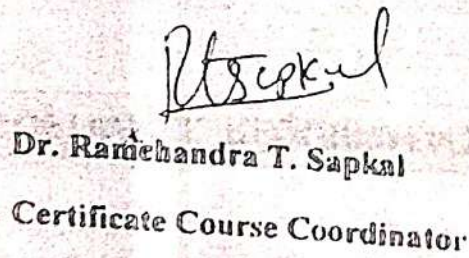 RTSapkal
Dr. Ramchandra T. Sapkal
Certificate Course Coordinator